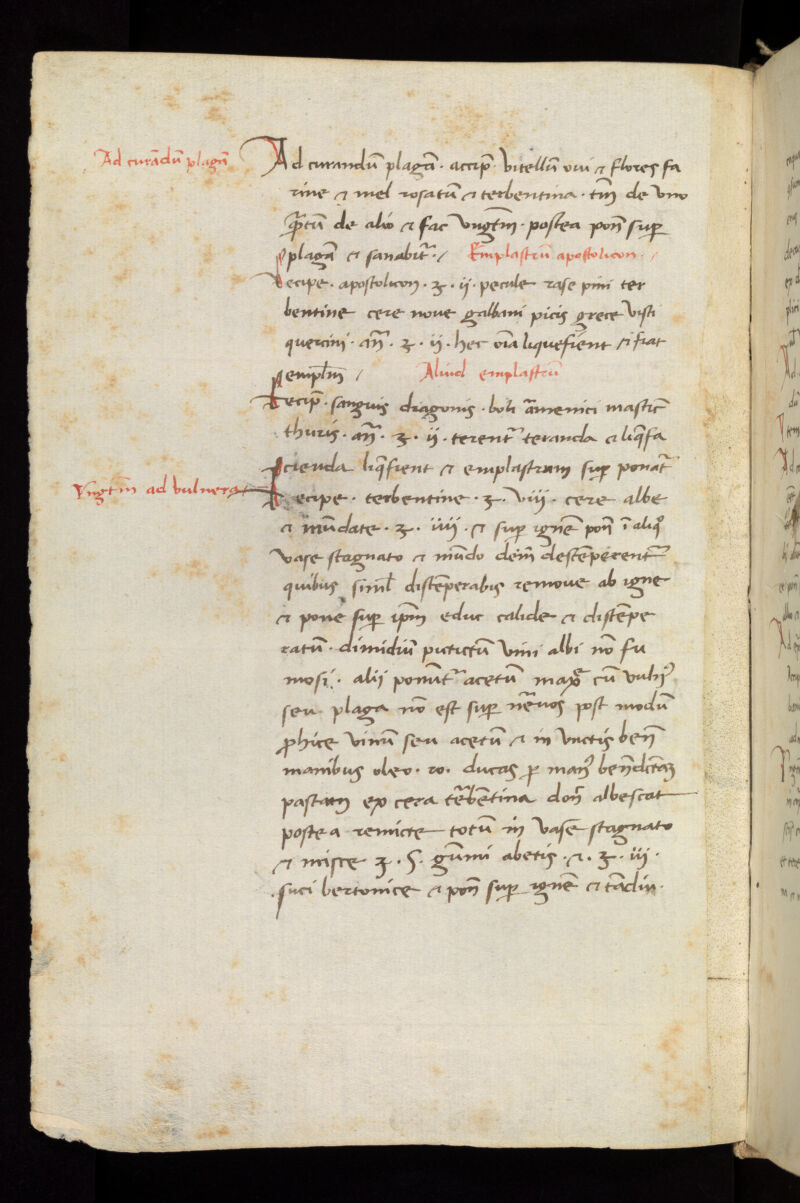 Ad curādū plagā
Ad curandū plagā · accip̄ · vitellū oui et flores fa
rine et mel rosatū et terbentina · tm̄ de vno
q̄tū de alio et fac vngētm̄ · postea pon̄ sup̄
plagā et sanabit̄ · / Emplastrū apostolicon · /
Recipe · apostolicon · ʒ · ij · pecule rase pini ter
bentine cere noue galbani picis grece visti
quercini · an̄ · ʒ · ij · hec oīa liquefient et fiat
emplm̄ / Aliud emplastrū
Recip̄ · sanguis dragonis · boli armenici mastic̄
thuris · an̄ · ʒ · ij · terent̄ teranda et liq̄fa
cienda liq̄fient et emplastrum sup̄ ponat̄
Vngtm̄ ad vulnera
Recipe · terbentine · ʒ · viij · cere albe
et mūdate · ʒ · iiij · et sup̄ ignē pon̄ ī aliq̊
vase stagnato et mūdo dem̄ destēperent̄
quibus siml̄ distēperabis remoue ab igne
et pone sup̄ ip̄m educ calide et distēpe
ratū · dimidiū vini albi nō fu
mosi · alij ponūt acetū cū vuln̄
seu plaga nō est sup̄ neruos post modū
p̄hice vinū seu acetū et in vnctis ben̄
manibus oleo · ro · ducas p̄ man̄ bn̄dictā
pastam ex cera terbentina don̄ albescat
postea remicte totū in vase stagnato
et misce ʒ · S · gūmi abetis · et · ʒ · iij ·
suci bertonice et pon̄ sup̄ ignē et tādiu ·